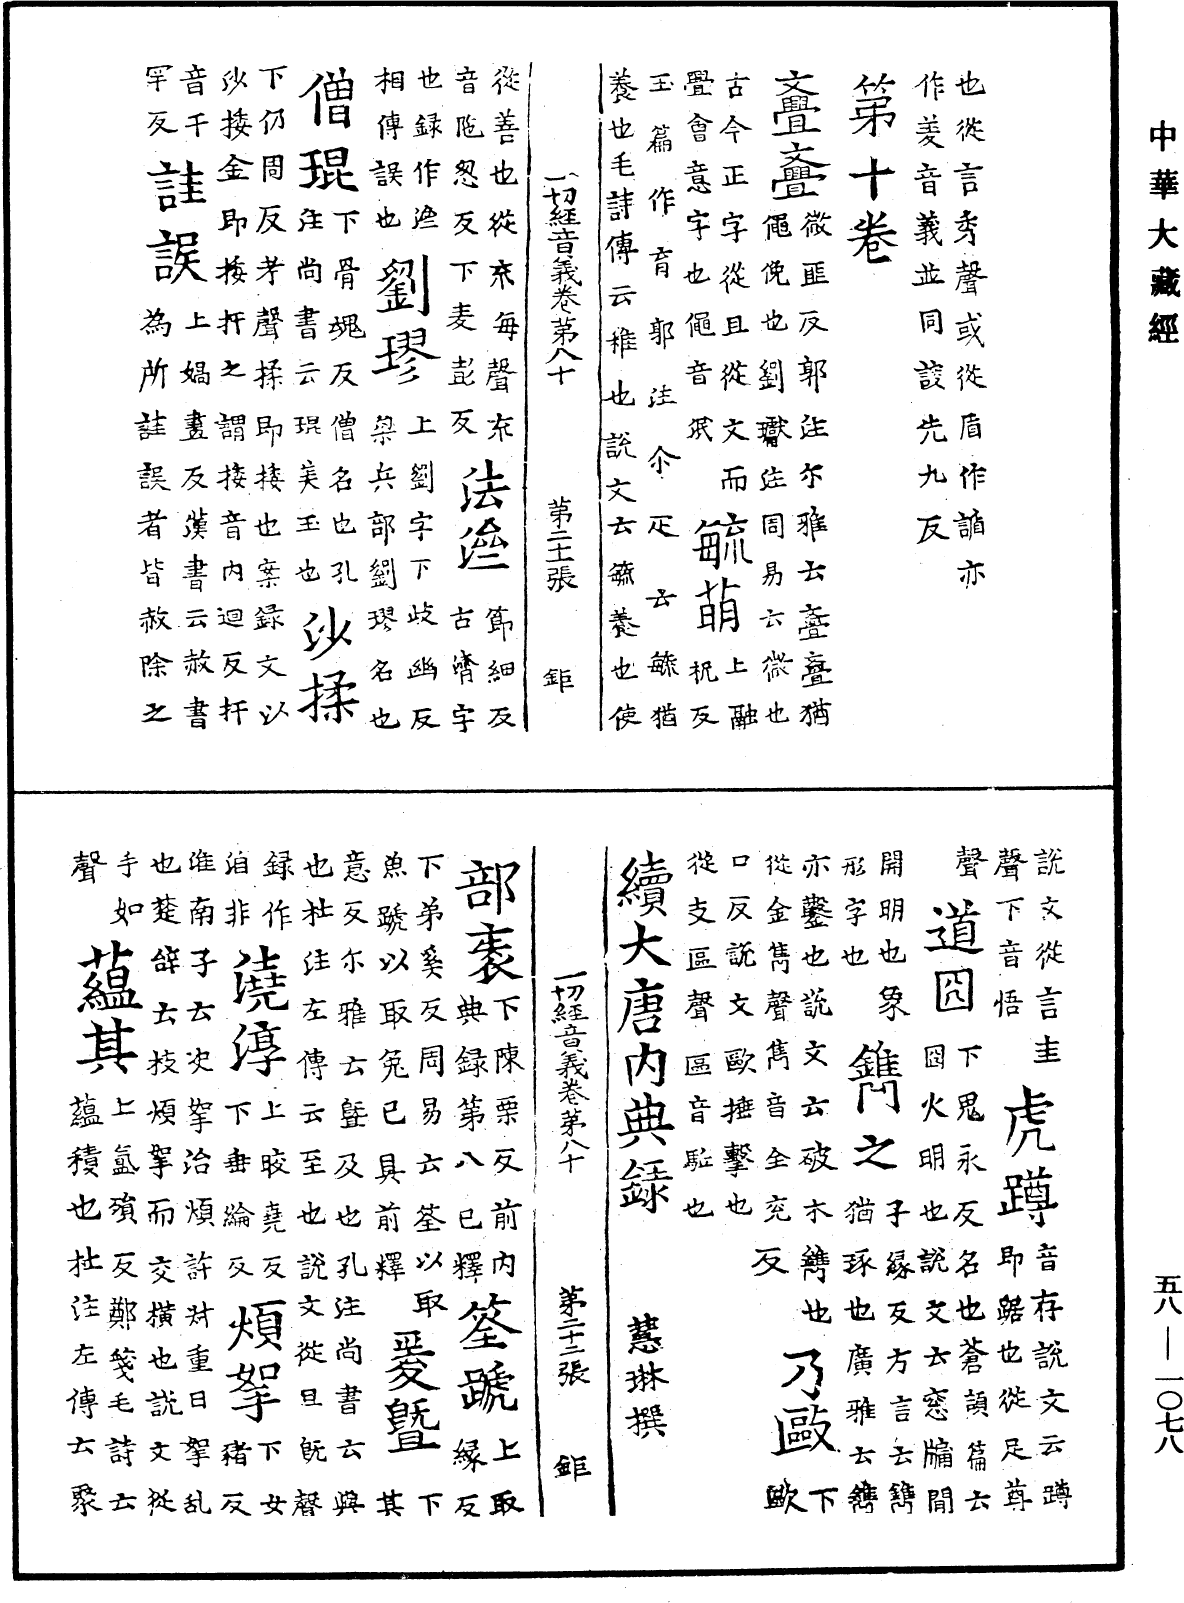 中華大藏經
也從言秀聲或從盾作𧩂亦
作羑音義並同誜先九反
第十卷
亹亹
微匪反郭注尒雅云亹亹猶
僶俛也劉瓛注周易云微也
古今正字從且從文而
釁會意字也僶音泯
毓萌
上融
祝反
玉篇作育郭注尒疋云毓猶
養也毛詩傳云稚也說文云毓養也使
一切經音義卷第八十 第二十二張 鉅
從善也從㐬每聲㐬
音陁忽反下麦彭反
法濟
節細反
古濟字
也録作㴉
相傳誤也
劉璆
上劉字下歧幽反
梁兵部劉璆名也
僧琨
下骨魂反僧名也孔
注尚書云琨美玉也
沙揉
下仍周反考聲揉即挼也案録文以
沙挼金即挼扞之謂挼音內迴反扞
音干
罕反
詿誤
上媧畫反漢書云赦書
為所詿誤者皆赦除之
說文從言圭
聲下音悟
虎蹲
音存說文云蹲
即踞也從足尊
聲
道囧
下鬼永反名也蒼頡篇云
囧火明也說文云窓牖開
開明也象
形字也
鐫之
子縁反方言云鐫
猶琢也廣雅云鐫
亦鑿也說文云破木鐫也
從金雋聲雋音全兖反
乃毆
下
歐
口反說文歐捶擊也
從攴區聲區音駈也
續大唐內典錄 慧琳撰
一切經音義卷第八十 第二十三張 鉅
部袠
下陳栗反前內
典録第八已釋
筌蹏
上取
縁反
下弟奚反周易云筌以取
魚蹏以取兔已具前釋
爰曁
下
其
意反尒雅云曁及也孔注尚書云與
也杜注左傳云至也說文從旦旣聲
録作
洎非
澆淳
上晈堯反
下垂綸反
煩挐
下女
豬反
淮南子云決挐治煩許叔重曰挐亂
也楚辭云枝煩挐而交橫也說文從
手如
聲
蘊其
上氳殞反鄭箋毛詩云
蘊積也杜注左傳云聚
五八—一〇七八